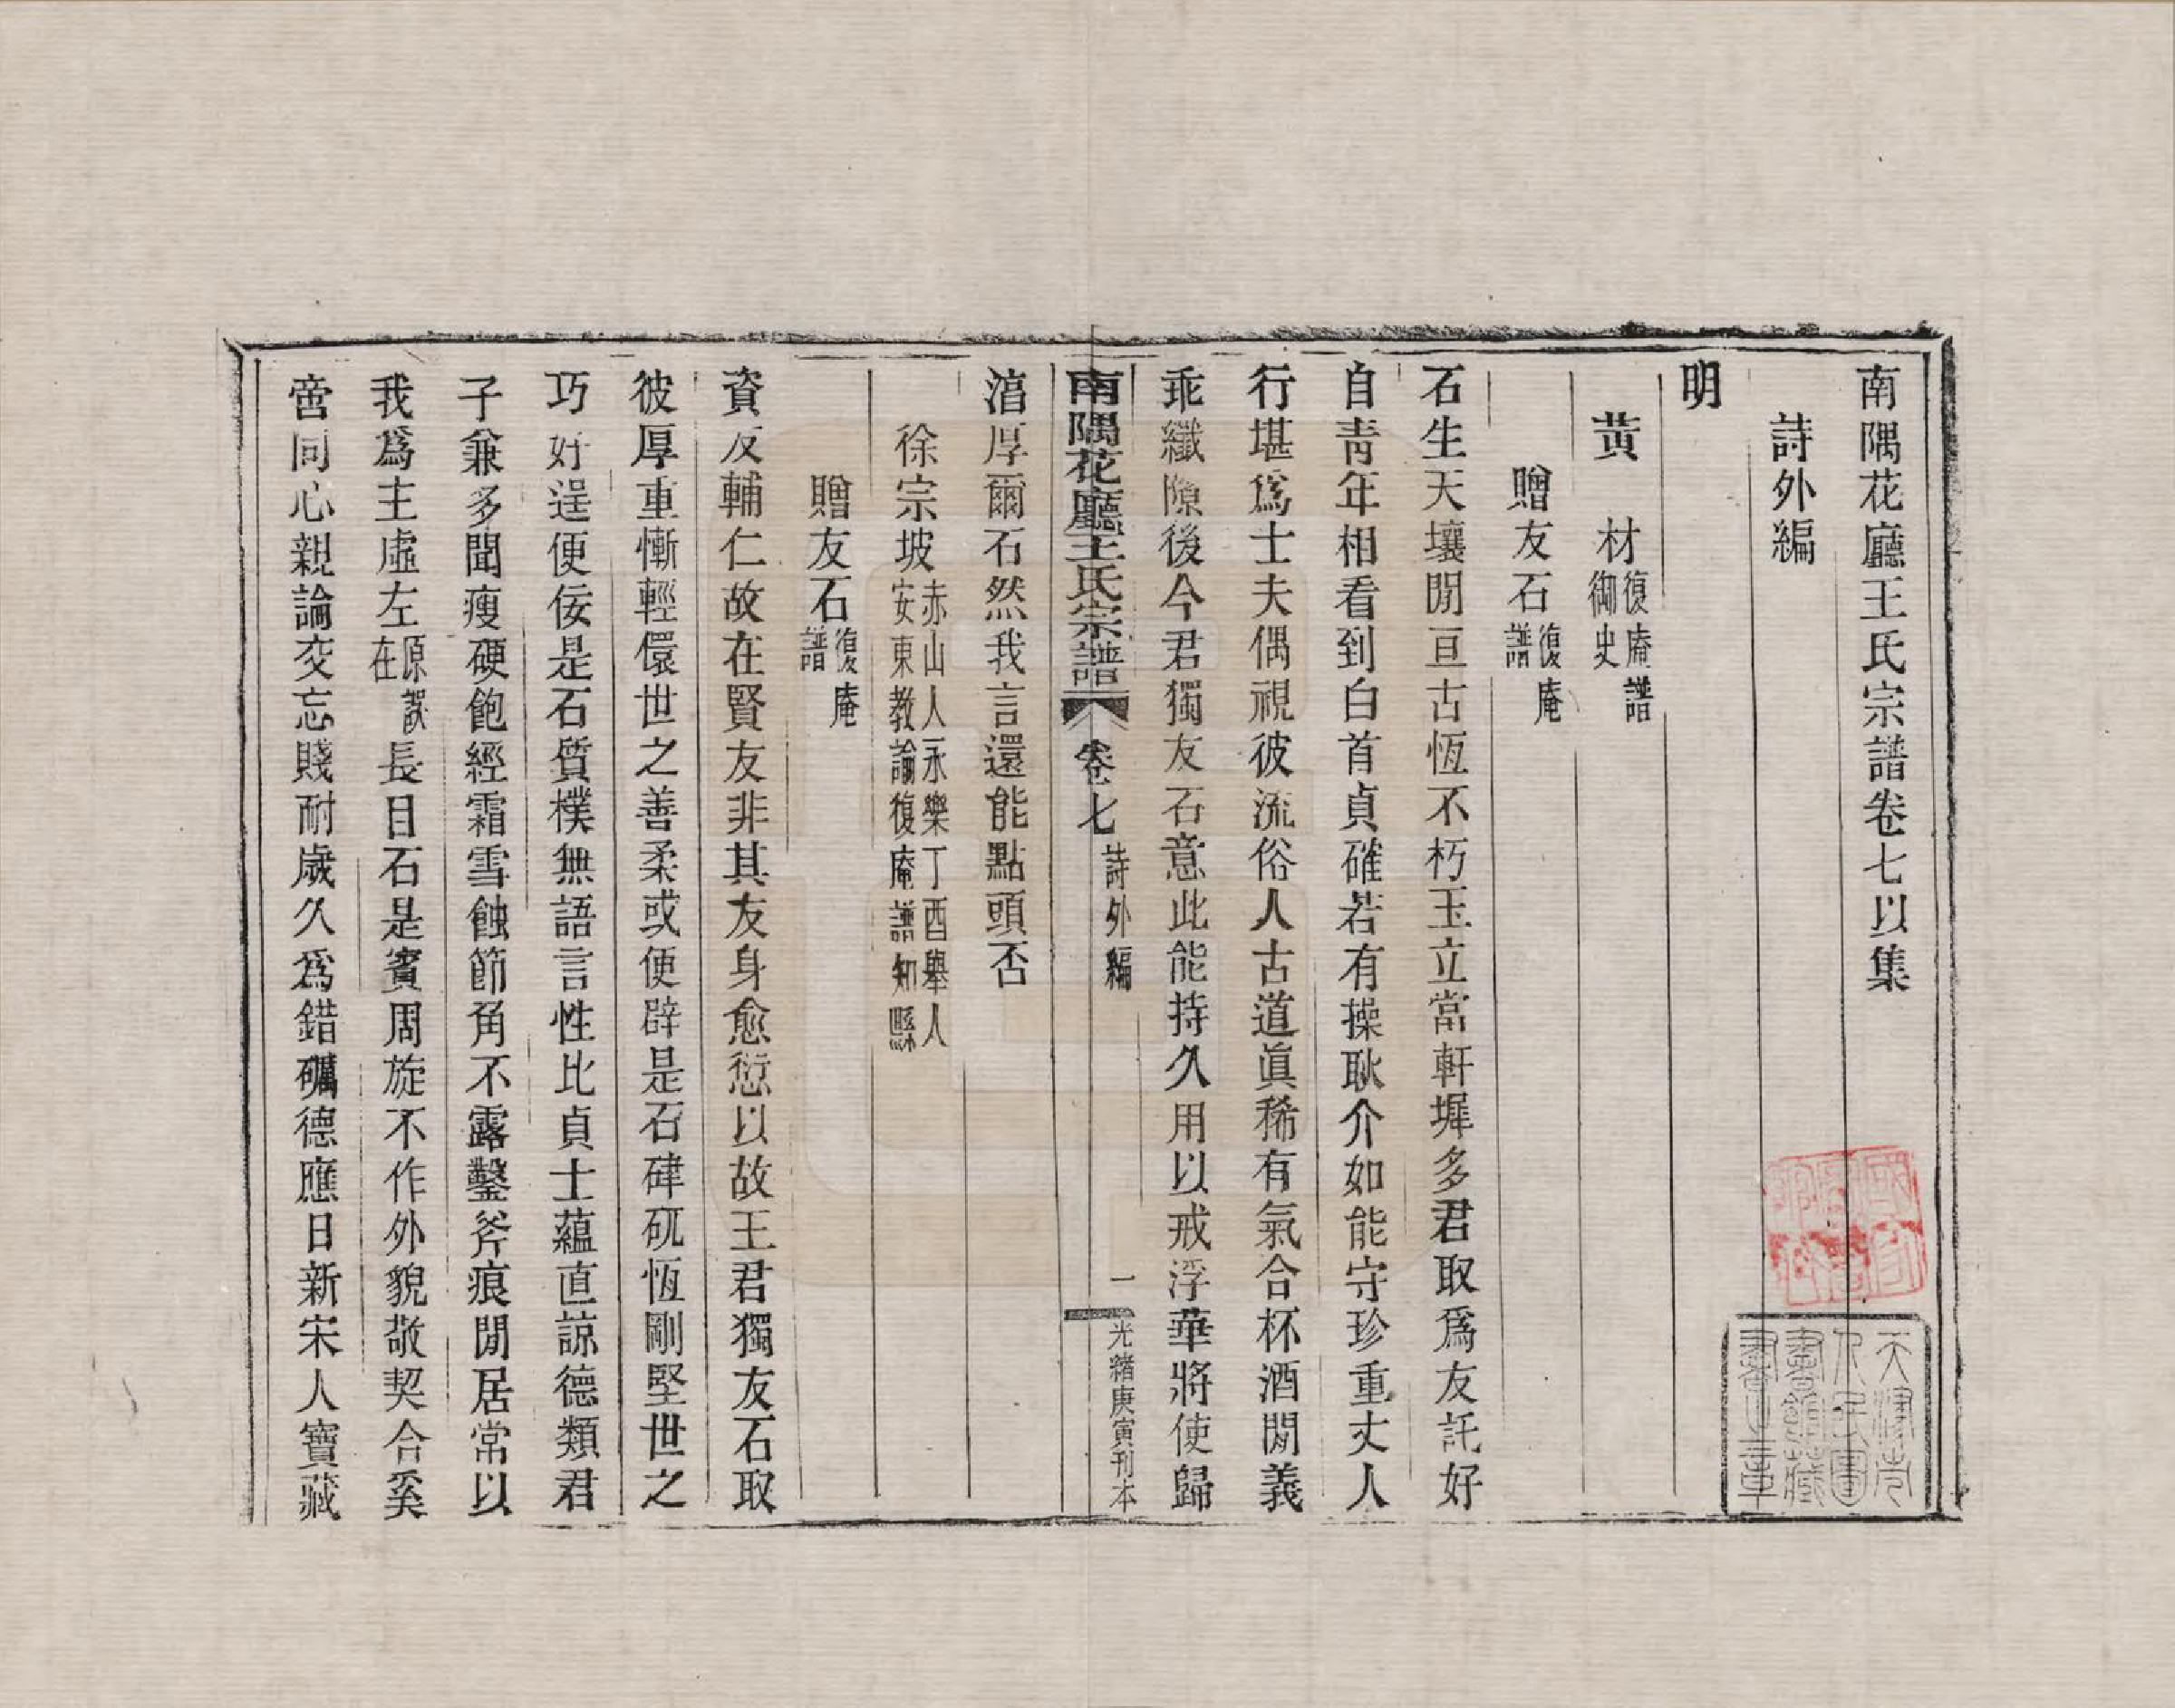 南隅花廳王氏宗譜卷七以集
詩外編
明
黃 材復庵譜御史
贈友石復庵譜
石生天壤閒亘古恆不朽玉立當軒墀多君取爲友託好
自青年相看到白首貞確若有操耿介如能守珍重丈人
行堪爲士夫偶視彼流俗人古道眞稀有氣合杯酒閒義
乖纖隙後今君獨友石意此能持久用以戒浮華將使歸
湻厚爾石然我言還能點頭否
南隅花廳王氏宗譜 卷七 詩外編 一 光緒庚寅刊本
徐宗坡赤山人永樂丁酉舉人安東教諭復庵譜知縣
贈友石復庵譜
資友輔仁故在賢友非其友身愈愆以故王君獨友石取
彼厚重慚輕儇世之善柔或便辟是石硉矹恆剛堅世之
巧好逞便佞是石質樸無語言性比貞士蘊直諒德類君
子兼多聞瘦硬飽經霜雪蝕節角不露鑿斧痕閒居常以
我爲主虛左原誤在長日石是賓周旋不作外貌敬契合奚
啻同心親論交忘賤耐歲久爲錯礪德應日新宋人寶藏
天津市人民圖書館藏書之章